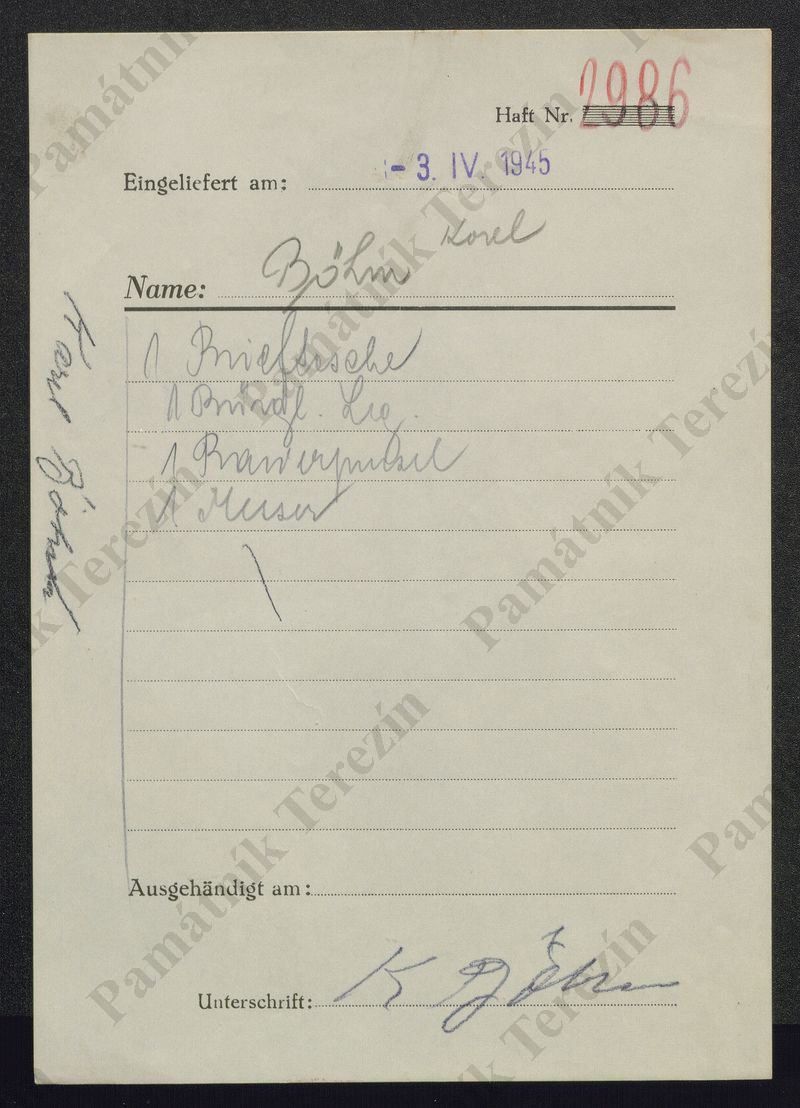 Haft Nr. 2986
Eingeliefert am: - 3. IV. 1945
Name: Böhm Karel
1 Brieftasche
1 Bürgl. Leg.
1
1 Messer
Karel Böhm
Ausgehändigt am:
Unterschrift: K Böhm
Památník Terezín